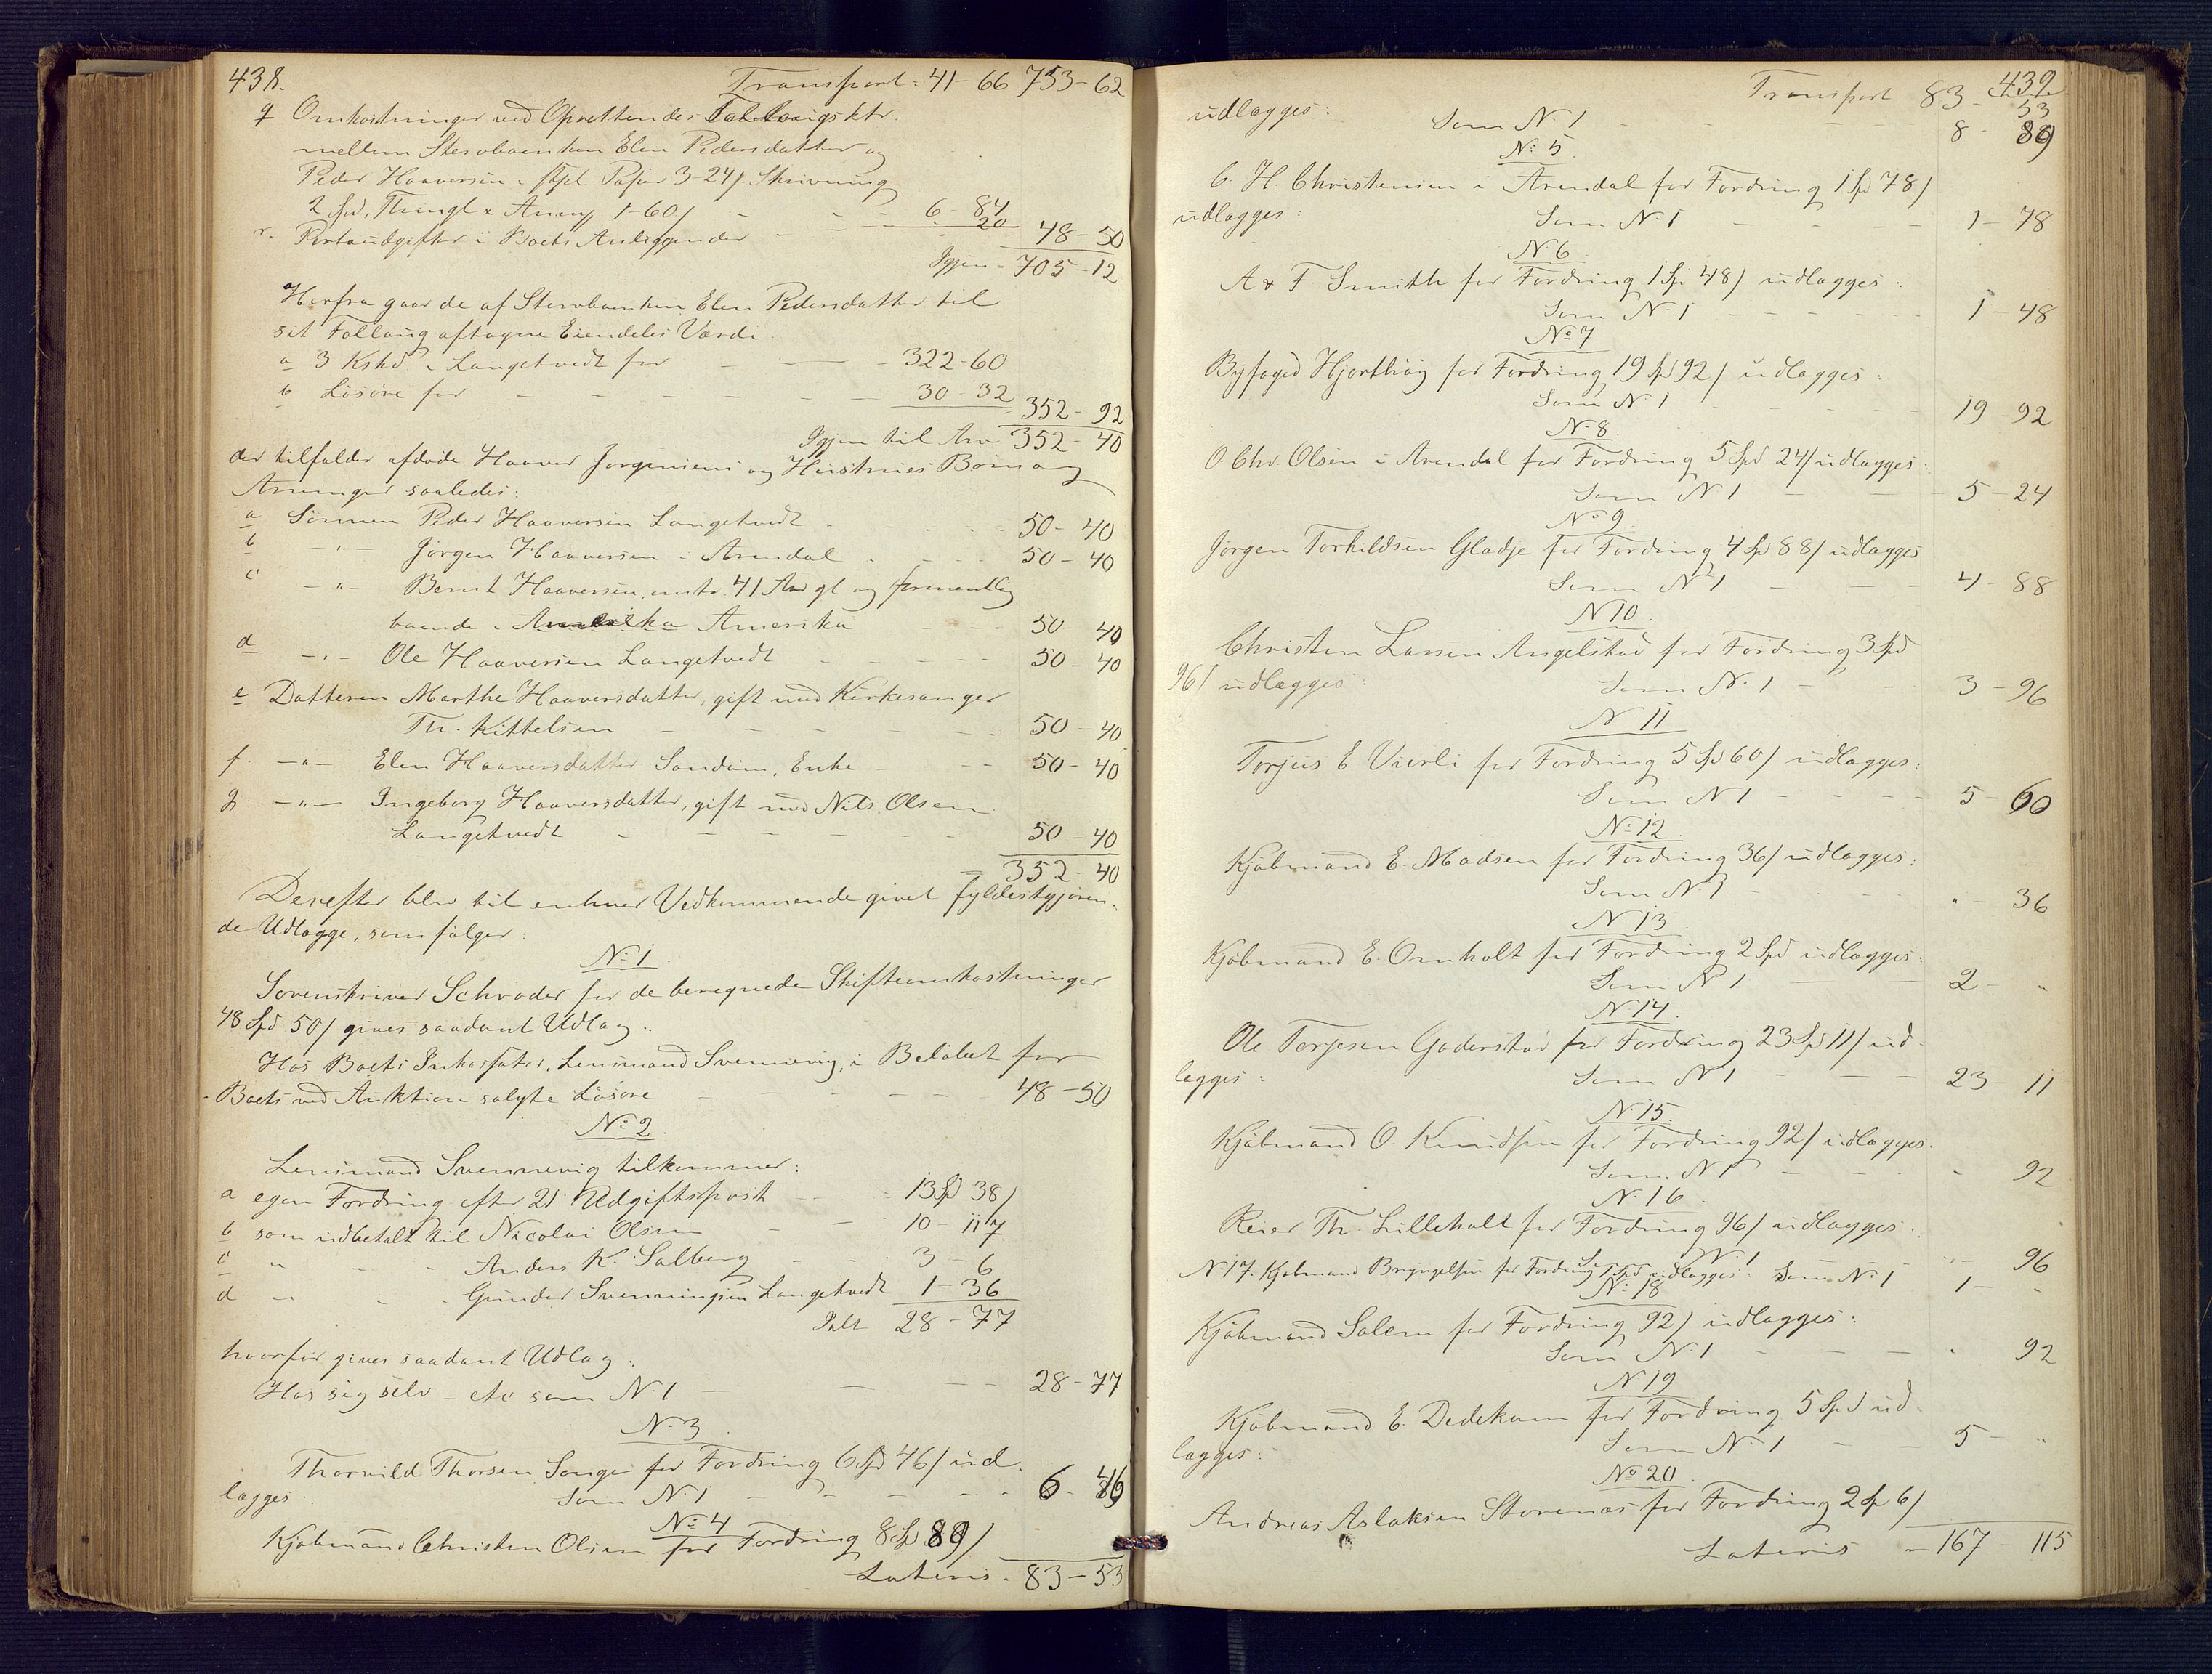 438.
Transport: 41-66 753-62
q Omkostninger ved Oprettendes Follaugsktr.
mellem Stervboenken Elen Pedersdatter og
Peder Haaversen: stpl Papir 3-24/ Skrivning
2 Spd, Thingl & Anm 1-60/ - - - 6-84
r. Portoudgifter i Boets Anliggender - - - 20 48-50
Igjen - 705-12
Herfra gaar de af Stervboenken Elen Pedersdatter til
sit Follaug aftagne Eiendeles Værdi
a 3 Kskd i Langetvedt for - - - 322-60
b Løsøre for - - - - - 30-32
352-92
Igjen til Arv 352-40
der tilfalder afdøde Haaver Jørgensens og Hustrues Børn og
Arvinger saaledes:
a Sønnen Peder Haaversen Langetvedt - - - 50-40
b -"- Jørgen Haaversen i Arendal - - - 50-40
c -"- Bernt Haaversen, omtr. 41 Aar gl og formentlig
boende i Amerika - - - 50-40
d -"- Ole Haaversen Langetvedt - - - 50-40
e Datteren Marthe Haaversdatter, gift med Kirkesanger
Th. Kittelsen - - - - 50-40
f -"- Elen Haaversdatter Sandum, Enke - - - 50-40
g -"- Ingeborg Haaversdatter, gift med Nils Olsen
Langetvedt - - - - 50-40
352-40
Derefter blev til enhver Vedkommende givet fyldestgjøren-
de Udlægge, som følger:
No 1
Sorenskriver Schrøder for de beregnede Skifteomkostninger
48 Spd 50/ gives saadant Udlæg:
Hos Boets Inkassator, Lensmand Svennevig, i Beløbet for
Boets ved Auktion solgte Løsøre - - - 48-50
No 2
Lensmand Svennevig tilkommer:
a egen Fordring efter 21 Udgiftspost - - 13 Spd 38/
b som udbetalt til Nicolai Olsen - - 10-117
c " - - Anders K. Salberg - - 3-6
d " - - Gunder Svenningsen Langetvedt 1-36
Ialt 28-77
hvorfor gives saadant Udlæg:
Hos sig selv - etc som N. 1 - - - 28-77
N. 3
Thorvild Thorsen Songe for Fordring 6 Spd 46/ ud-
lægges: Som N. 1 - - - 6-46
No 4
Kjøbmand Christen Olsen for Fordring 8 Spd 89/
Lateris - 83-53
439.
Transport 83-53
udlægges: Som N. 1 - - - 8-89
No 5
C. H. Christensen i Arendal for Fordring 1 Spd 78/
udlægges: Som N. 1 - - - 1-78
N. 6
A & F. Smith for Fordring 1 Sp 48/ udlægges:
Som N. 1 - - - 1-48
No 7
Byfoged Hjorthøy for Fordring 19 Spd 92/ udlægges:
Som N. 1 - - - 19-92
N. 8
O. Chr. Olsen i Arendal for Fordring 5 Spd 24/ udlægges:
Som N 1 - - - 5-24
No 9
Jørgen Torkildsen Gladje for Fordring 4 Sp 88/ udlægges
Som N 1 - - - 4-88
N 10
Christen Larsen Angelstad for Fordring 3 Spd
96/ udlægges: Som N. 1 - - 3-96
N 11
Torjus E Vierli for Fordring 5 Spd 60/ udlægges:
Som N 1 - - - 5-60
No 12
Kjøbmand E. Madsen for Fordring 36/ udlægges:
Som N 1 - - - " - 36
N. 13
Kjøbmand E. Omholt for Fordring 2 Spd udlægges:
Som N 1 - - 2 - "
N 14
Ole Torjesen Goderstad for Fordring 23 Sp 11/ ud-
lægges: Som N 1 - - - 23-11
N. 15
Kjøbmand O. Knudsen for Fordring 92/ udlægges:
Som N 1 - - - " 92
N. 16
Reier Th. Lilleholt for Fordring 96/ udlægges:
Som N. 1 " - 96
N 17. Kjøbmand Bryngelsen for Fordring 1 Spd udlægges: Som N. 1 1 - "
No 18
Kjøbmand Salem for Fordring 92/ udlægges:
Som N. 1 - - - " 92
N. 19
Kjøbmand E. Dedekam for Fordring 5 Spd ud-
lægges: Som N. 1 - 5 - "
No 20
Andreas Aslaksen Storenæs for Fordring 2 Sp 6/
Lateris - 167-115